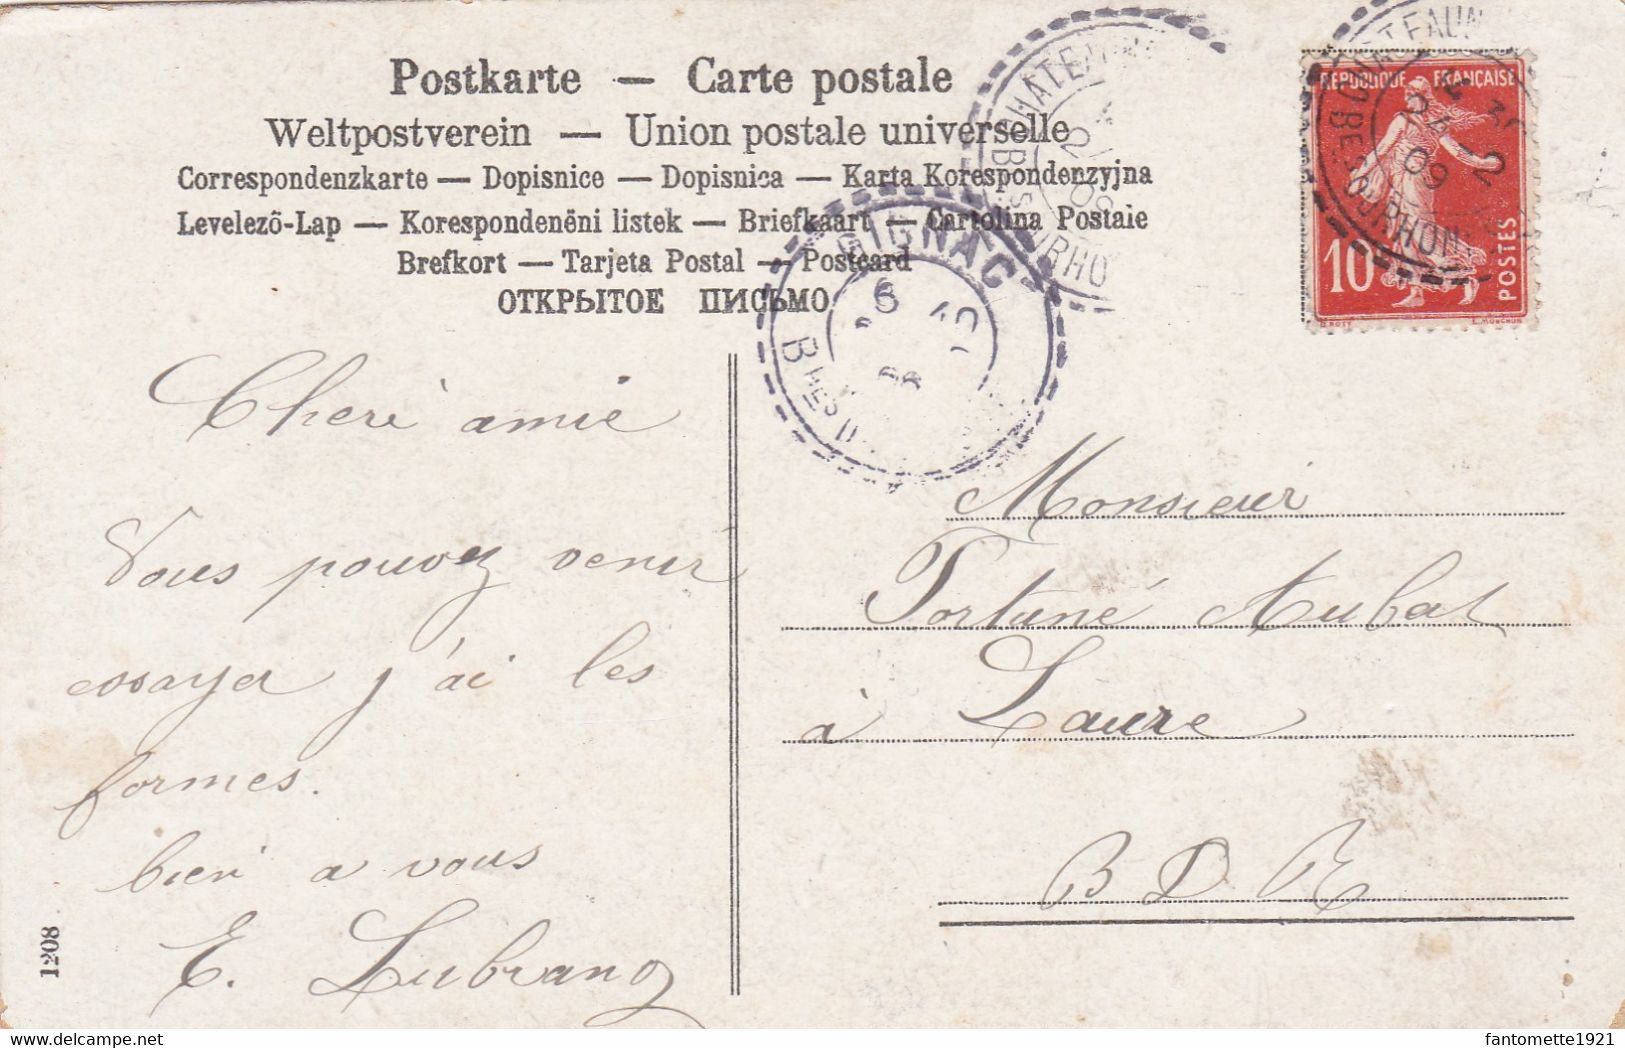 Postkarte — Carte postale
Weltpostverein — Union postale universelle
Correspondenzkarte — Dopisnice — Dopisnica — Karta Korespondenzyjna
Levelezõ-Lap — Korespondenëni listek — Briefkaart — Cartolina Postale
Brefkort — Tarjeta Postal — Postcard
ОТКРЫТОЕ ПИСЬМО
REPUBLIQUE FRANÇAISE
10
POSTES
O. ROTY
L. MOUCHON
GIGNAC
Cheré amie
Vous pouvez venir
essayer j'ai les
formes.
bien a vous
E. Lubrano
Monsieur
Fortuné Aubat
à Laure
B D R
1208
delcampe.net
fantomette1921